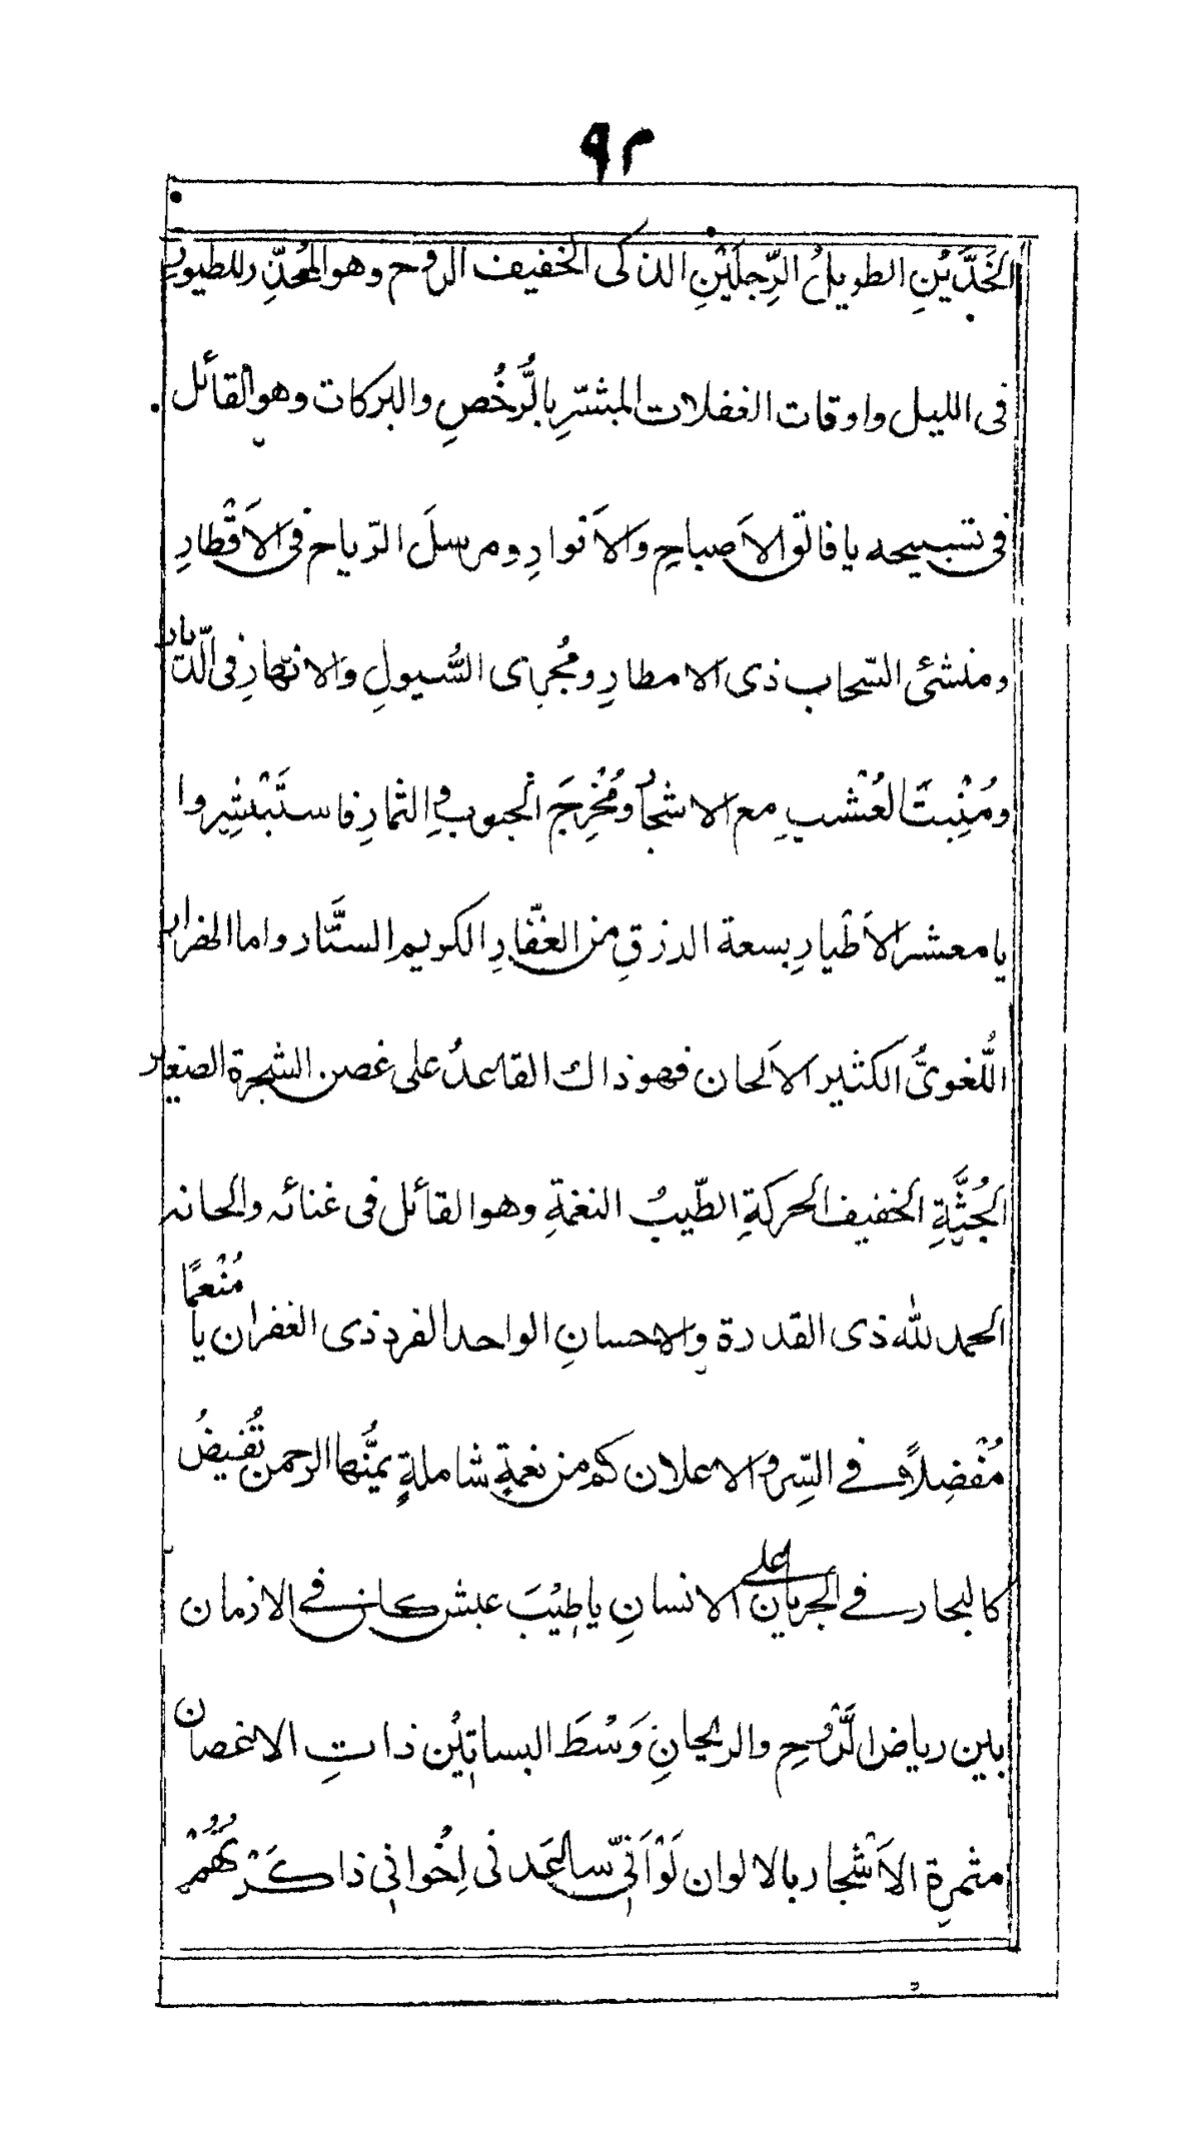 ٩٢
الخَدَّيْنِ الطويلُ الرِّجلَيْنِ الذكى الخفيف الروح وهو المُحذِّر للطيور
فى الليل واوقات الغفلات المبشّرِ بالرُّخُصِ والبركات وهو القائل
فى تسبيحه يا فالق الاَصباحِ والاَنوارِ ومرسلَ الرّياح فى الاَقْطارِ
ومنشئ السّحاب ذى الامطارِ ومُجرِى السُّيولِ والانهارِ فى الدّيار
ومُنْبِتَ العُشْبِ مع الاشجار ومُخْرِجَ الحبوب والثمارِ فاستَبْشِروا
يا معشر الاَطْيارِ بسعة الرزقِ من الغفّارِ الكريم الستَّار واما الهزار
اللُّغوىُّ الكثير الاَلحان فهو ذاك القاعدُ على غصن الشجرة الصغير
الجُثَّةِ الخفيف الحركةِ الطّيبُ النغمةِ وهو القائل فى غنائه والحانه
الحمد لله ذى القدرة والاحسانِ الواحد الفرد ذى الغفران يا مُنْعمًا
مُفْضِلاً فے السِّر والاعلان كم من نعمةٍ شاملةٍ يمُنُّها الرحمن تُفيضُ
كالبحار فے الجريان على الانسانِ يا طِيْبَ عيش كان فے الازمان
بين رياض الرَّوْحِ والريحانِ وَسْطَ البساتِيْن ذاتِ الاغصان
مثمرة الاَشْجار بالالوان لَوْ اَنِّى ساعَدنى اِخْوانى ذاكَرْتُهُمْ